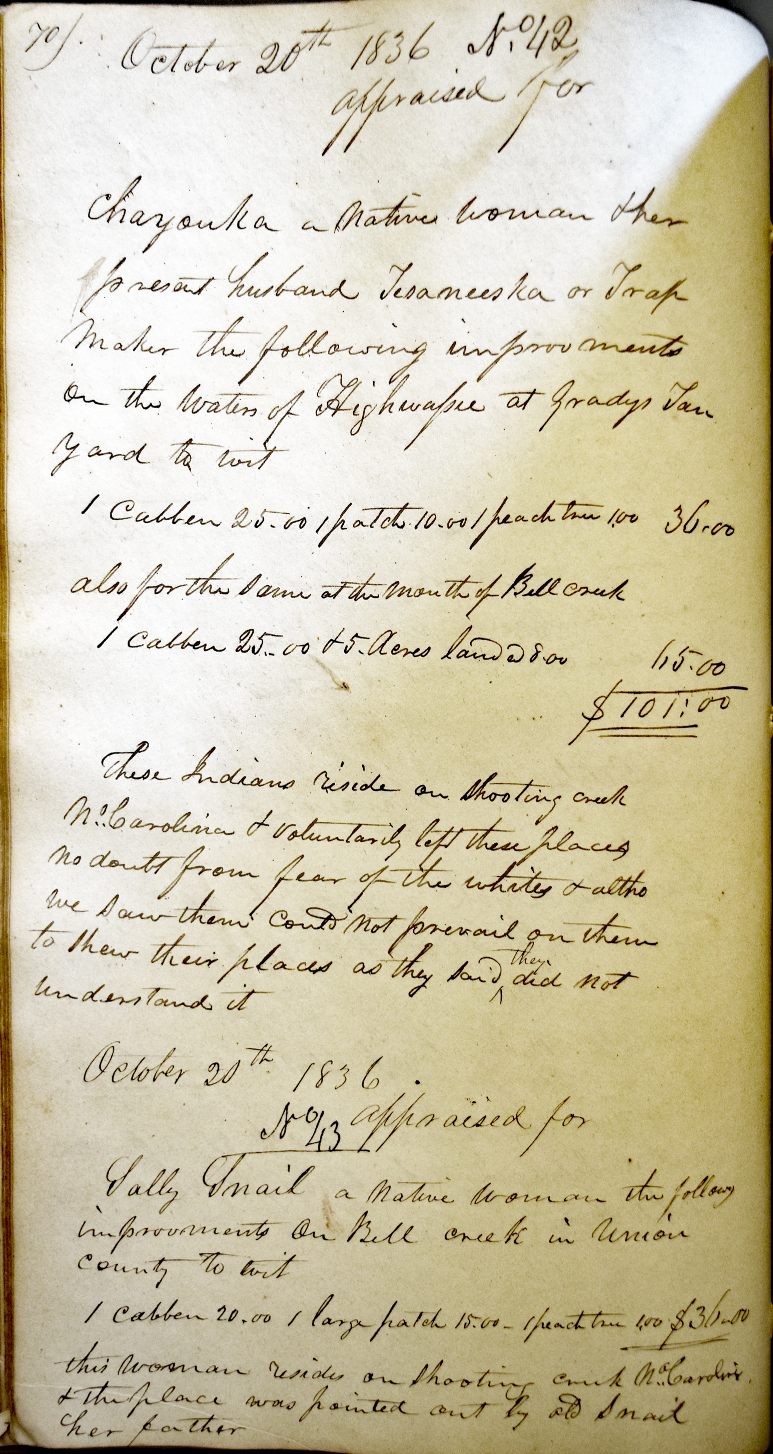 70/.
October 20th 1836 No. 42
appraised for
Chayouka a Native woman & her
present husband Tesaneeska or Trap
Maker the following improovments
on the Waters of Highwassee at Gradys Tan
Yard to wit
1 Cabben 25.00 1 patch 10.00 1 peach tree 1.00 36.00
also for the same at the mouth of Bell creek
1 Cabben 25.00 & 5 Acres land @ 8.00 65.00
$101.00
These Indians reside on Shooting creek
No. Carolina & voluntarily left these places
no doubt from fear of the whites & altho
we saw them could not prevail on them
to shew their places as they said they did not
understand it
October 20th 1836.
No. 43 appraised for
Sally Snail a Native woman the follow
improovments on Bell creek in Union
county to wit
1 cabben 20.00 1 large patch 15.00 - 1 peach tree 1.00 $36.00
this woman resides on Shooting creek No. Carolin.
& the place was pointed out by old Snail
her father